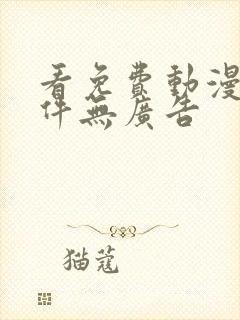 看免費動漫
件無廣告
猫蔻